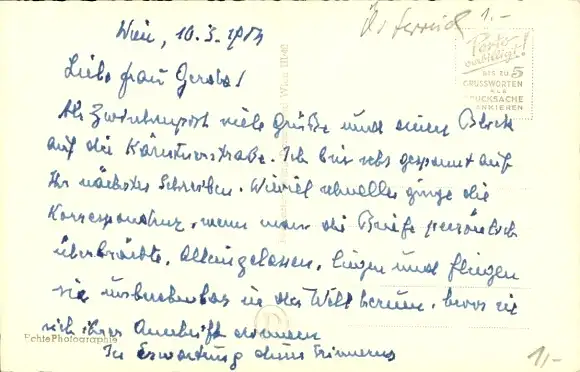 Wien, 10.3.1954
Österreich 1.-
Porto
verbilligt!
BIS ZU 5
GRUSSWORTEN
ALS
DRUCKSACHE
FRANKIEREN
Liebe Frau
Als Zwischenpost viele Grüße und einen Blick
auf die Kärntnerstraße. Ich bin sehr gespannt auf
Ihr nächstes Schreiben. Wieviel schneller ginge die
Korrespondenz, wenn man die Briefe persönlich
überbrächte. Alleingelassen, liegen und fliegen
sie in der Welt herum, bevor sie
sich ihrer Anschrift
In Erwartung
Echte Photographie
1,-